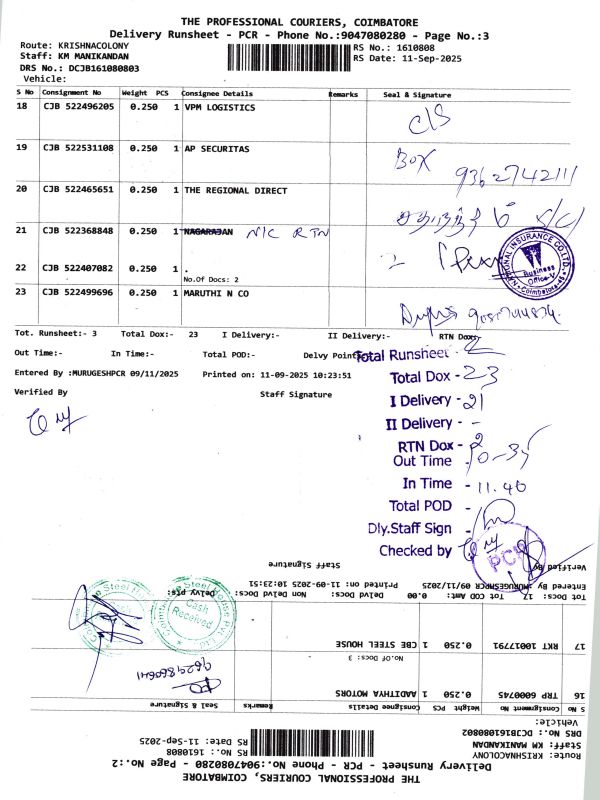 THE PROFESSIONAL COURIERS, COIMBATORE
Delivery Runsheet - PCR - Phone No.:9047080280 - Page No.:3
Route: KRISHNACOLONY
Staff: KM MANIKANDAN
DRS No.: DCJB161080803
Vehicle:
RS No.: 1610808
RS Date: 11-Sep-2025
S No Consignment No Weight PCS Consignee Details Remarks Seal & Signature
18 CJB 522496205 0.250 1 VPM LOGISTICS C/S
19 CJB 522531108 0.250 1 AP SECURITAS BOX 9362742111
20 CJB 522465651 0.250 1 THE REGIONAL DIRECT
21 CJB 522368848 0.250 1 NAGARAJAN N/C RTN
22 CJB 522407082 0.250 1 .
No.Of Docs: 2
NATIONAL INSURANCE CO.LTD.
Business Office-V
Coimbatore-45
23 CJB 522499696 0.250 1 MARUTHI N CO
Tot. Runsheet:- 3 Total Dox:- 23 I Delivery:- II Delivery:- RTN Dox:-
Out Time:- In Time:- Total POD:- Delvy Point
Entered By :MURUGESHPCR 09/11/2025 Printed on: 11-09-2025 10:23:51
Verified By Staff Signature
Total Runsheet - 2
Total Dox - 23
I Delivery - 21
II Delivery - -
RTN Dox - 2
Out Time - 10-35
In Time - 11.40
Total POD -
Dly.Staff Sign -
Checked by
PCR
THE PROFESSIONAL COURIERS, COIMBATORE
Delivery Runsheet - PCR - Phone No.:9047080280 - Page No.:2
Route: KRISHNACOLONY
Staff: KM MANIKANDAN
DRS No.: DCJB161080802
Vehicle:
RS No.: 1610808
RS Date: 11-Sep-2025
S No Consignment No Weight PCS Consignee Details Remarks Seal & Signature
16 TRP 6000745 0.250 1 AADITHYA MOTORS
No.Of Docs: 3
9629860641
17 RKT 10017791 0.250 1 CBE STEEL HOUSE
Coimbatore Steel House
Cash Received
Tot Docs: 17 Tot COD Amt: 0.00 Delvd Docs: Non Delvd Docs: Delvy pts:
Entered By :MURUGESHPCR 09/11/2025 Printed on: 11-09-2025 10:23:51
Verified By Staff Signature